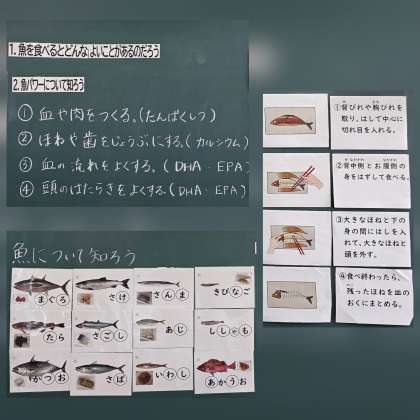 1.魚を食べるとどんなよいことがあるのだろう
2.魚パワーについて知ろう
① 血や肉をつくる。(たんぱくしつ)
② ほねや歯をじょうぶにする。(カルシウム)
③ 血の流れをよくする。(DHA・EPA)
④ 頭のはたらきをよくする。(DHA・EPA)
①背びれや胸びれを
取り、はしで中心に
切れ目を入れる。
②背中側とお腹側の
身をはずして食べる。
③大きなほねと下の
身の間にはしを入
れて、大きなほねと
頭を外す。
④食べ終わったら、
残ったほねを皿の
おくにまとめる。
魚について知ろう
まぐろ
さけ
さんま
きびなご
たら
さごし
あじ
ししゃも
かつお
さば
いわし
あかうお